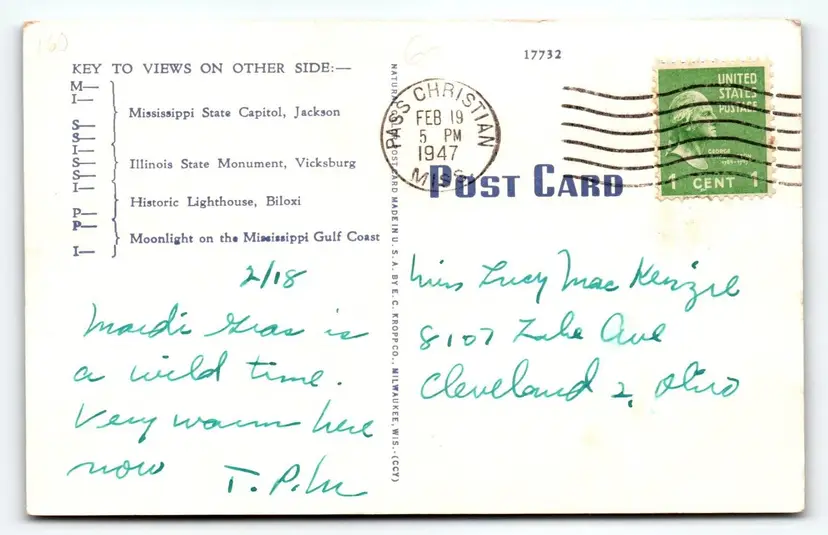 160
17732
KEY TO VIEWS ON OTHER SIDE:—
M—
I—
Mississippi State Capitol, Jackson
S—
S—
I—
Illinois State Monument, Vicksburg
S—
S—
I—
Historic Lighthouse, Biloxi
P—
P—
Moonlight on the Mississippi Gulf Coast
I—
2/18
Mardi Gras is
a wild time.
Very warm here
now
POST CARD MADE IN U.S.A. BY E. C. KROPP CO., MILWAUKEE, WIS.-(CCY)
PASS CHRISTIAN
FEB 19
5 PM
1947
MISS.
UNITED
STATES
POSTAGE
GEORGE
1 CENT 1
POST CARD
Miss Lucy MacKenzie
8107 Lake Ave
Cleveland 2, Ohio